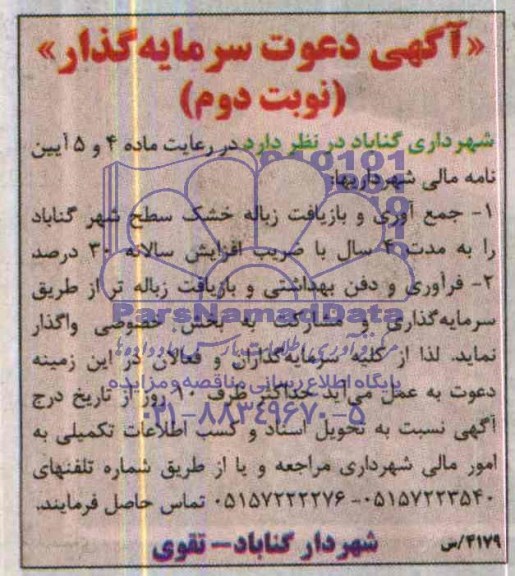 «آگهی دعوت سرمایه‌گذار»
(نوبت دوم)
شهرداری گناباد در نظر دارد در رعایت ماده ۴ و ۵ آیین
نامه مالی شهرداریها:
۱- جمع آوری و بازیافت زباله خشک سطح شهر گناباد
را به مدت ۴ سال با ضریب افزایش سالانه ۳۰ درصد
۲- فرآوری و دفن بهداشتی و بازیافت زباله تر از طریق
سرمایه‌گذاری و مشارکت به بخش خصوصی واگذار
نماید. لذا از کلیه سرمایه‌گذاران و فعالان در این زمینه
دعوت به عمل می‌آید حداکثر ظرف ۱۰ روز از تاریخ درج
آگهی نسبت به تحویل اسناد و کسب اطلاعات تکمیلی به
امور مالی شهرداری مراجعه و یا از طریق شماره تلفنهای
۰۵۱۵۷۲۲۳۵۴۰- ۰۵۱۵۷۲۲۲۲۷۶ تماس حاصل فرمایند.
۴۱۷۹/س
شهردار گناباد – تقوی
ParsNamadData
مرکز فرآوری اطلاعات پارس نماد داده‌ها
پایگاه اطلاع رسانی مناقصه و مزایده
۰۲۱-۸۸۳۴۹۶۷۰-۵